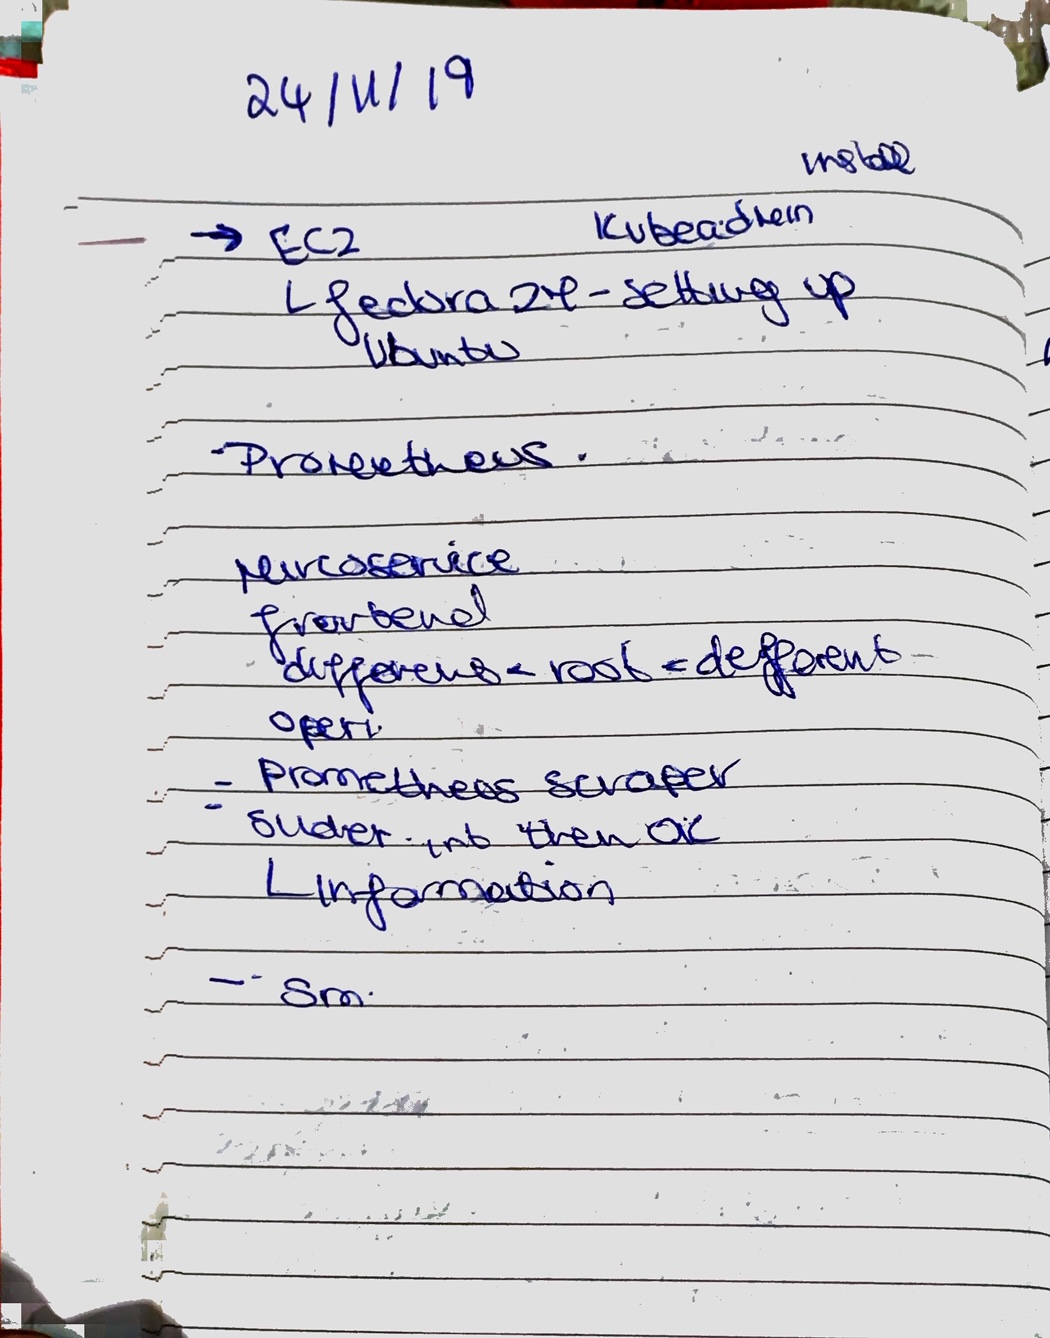 24/11/19
install
→ EC2 Kubeadmin
L fedora - setting up
Ubuntu
- Prometheus.
Microservice
frontend
different - root = defferent -
operi.
- Prometheus scraper
- then OK
L Information
- Sm.